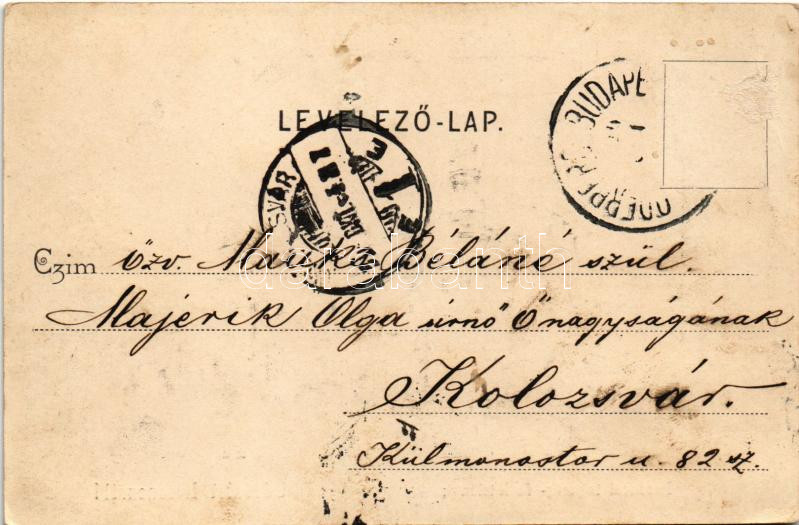 LEVELEZŐ-LAP.
BUDAPE
SVÁR
Czim özv. Mauks Béláné szül.
Majerik Olga úrnő Őnagyságának
Kolozsvár.
Külmonostor u. 82 sz.
darabanth